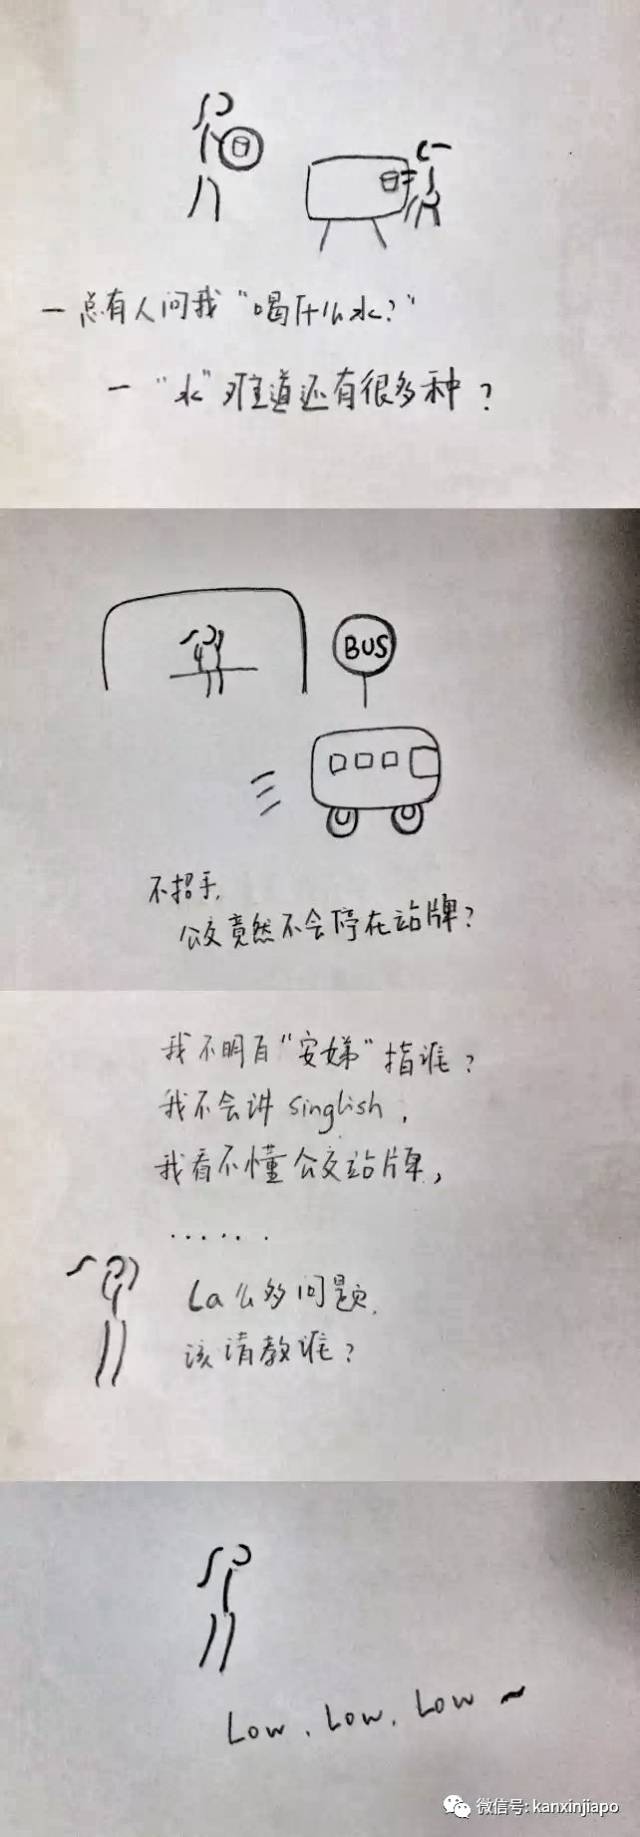 一 总有人问我“喝什么水？”
一 “水”难道还有很多种？
BUS
不招手，
公交竟然不会停在站牌？
我不明白“安娣”指谁？
我不会讲 singlish，
我看不懂公交站牌，
......
La么多问题，
该请教谁？
Low，Low，Low ~
微信号: kanxinjiapo